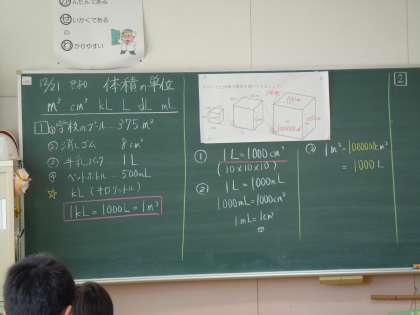 かんたんである
せいかくである
わかりやすい
12/21
体積の単位
m³ cm³ kL L dL mL
1 ㋐学校のプール … 375 m³
消しゴム 8 cm³
牛乳パック 1L
ペットボトル … 500mL
☆ kL (キロリットル)
1kL = 1000L = 1m³
① 1L = 1000cm³
(10×10×10)
② 1L = 1000mL
1000mL = 1000cm³
1mL = 1cm³
1m³ = 1000000cm³
= 1000L
2